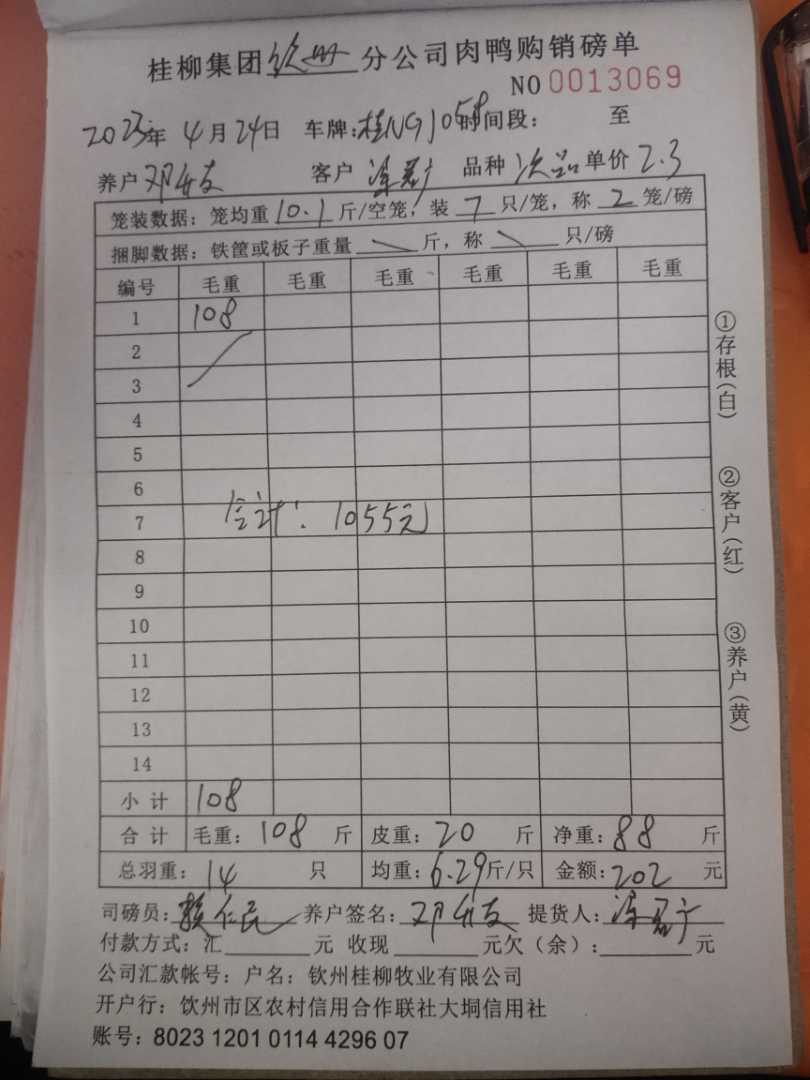 桂柳集团钦州分公司肉鸭购销磅单
NO 0013069
2023年 4月24日 车牌:桂NGJ058时间段: 至
养户邓 客户 涂 品种 次品 单价 2.3
笼装数据:笼均重 10.1 斤/空笼,装 7 只/笼,称 2 笼/磅
捆脚数据:铁筐或板子重量 斤,称 只/磅
编号 毛重 毛重 毛重 毛重 毛重 毛重
1 108
2
3
4
5
6
7 合计:1055元
8
9
10
11
12
13
14
小 计 108
合 计 毛重:108 斤 皮重:20 斤 净重:88 斤
总羽重:14 只 均重:6.29斤/只 金额:202 元
司磅员:赖仁民 养户签名:邓 提货人:涂
付款方式:汇 元 收现 元欠(余): 元
公司汇款帐号:户名:钦州桂柳牧业有限公司
开户行:饮州市区农村信用合作联社大垌信用社
账号:8023 1201 0114 4296 07
①存根(白)
②客户(红)
③养户(黄)